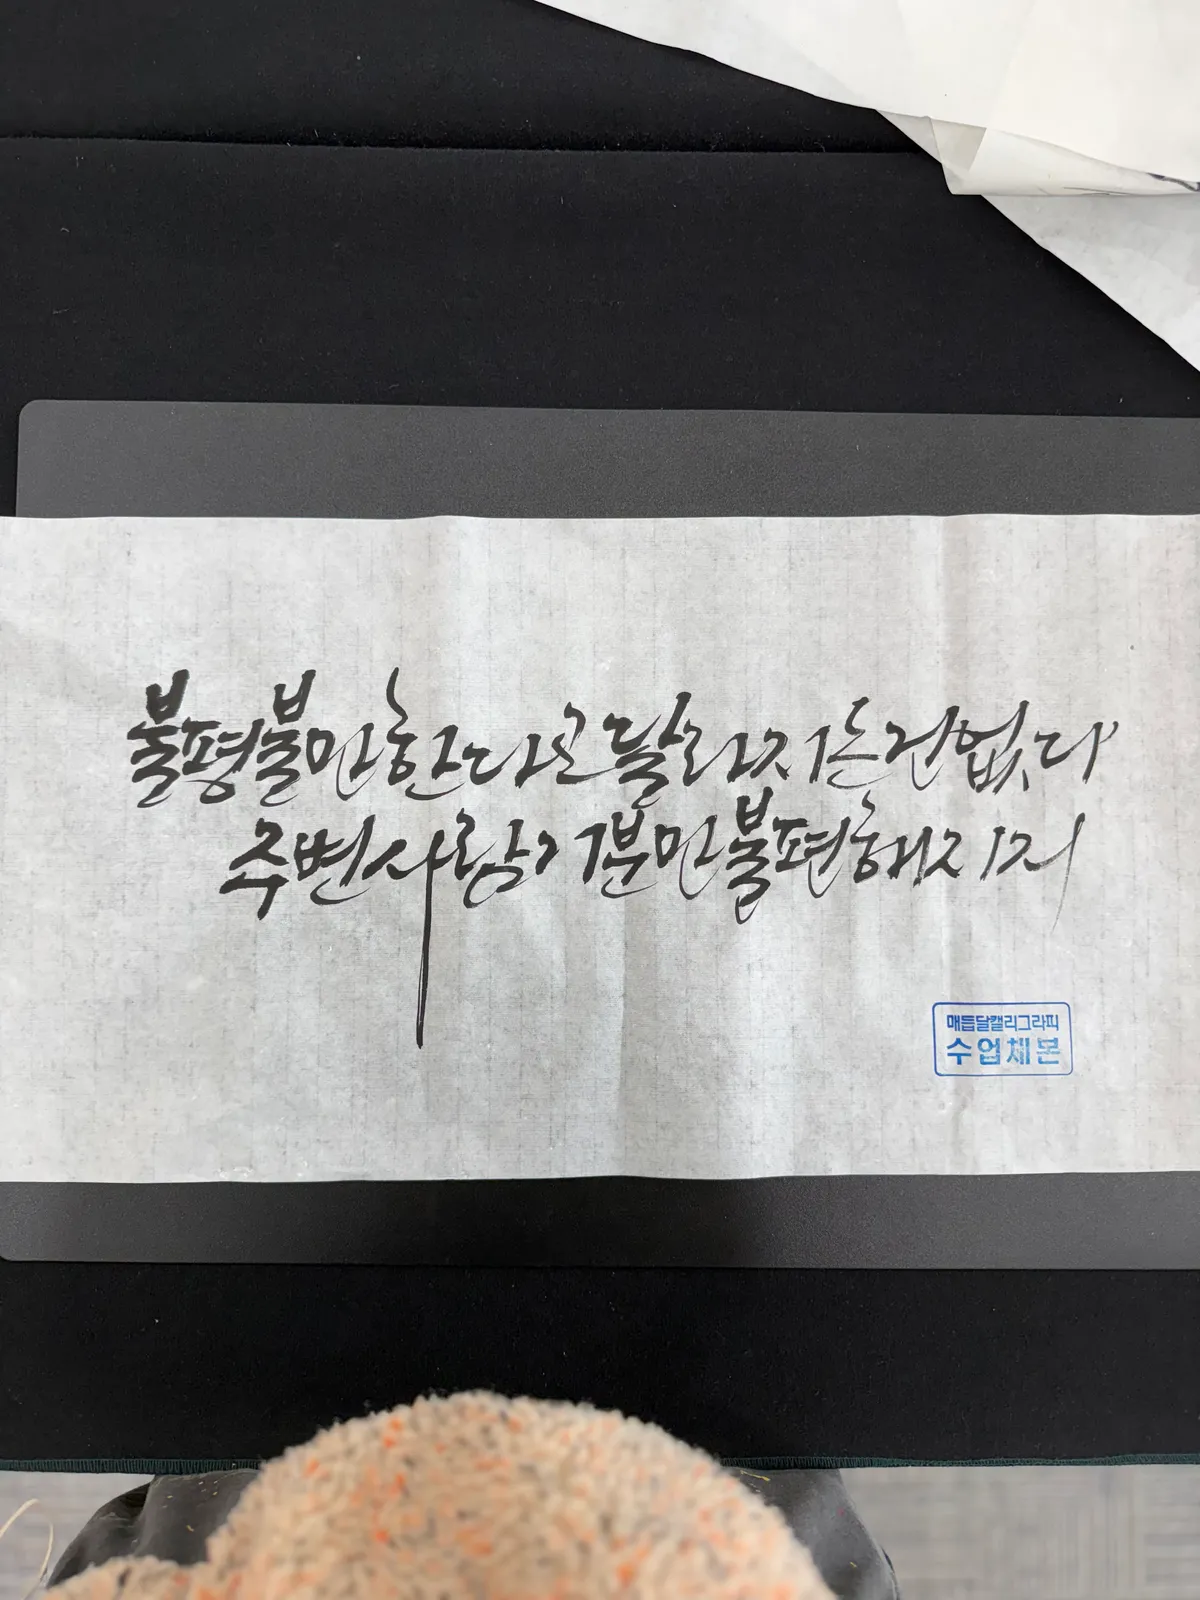 불평불만한다고 달라지는건 없다
주변사람 기분만 불편해지지
매듭달캘리그라피
수업체본